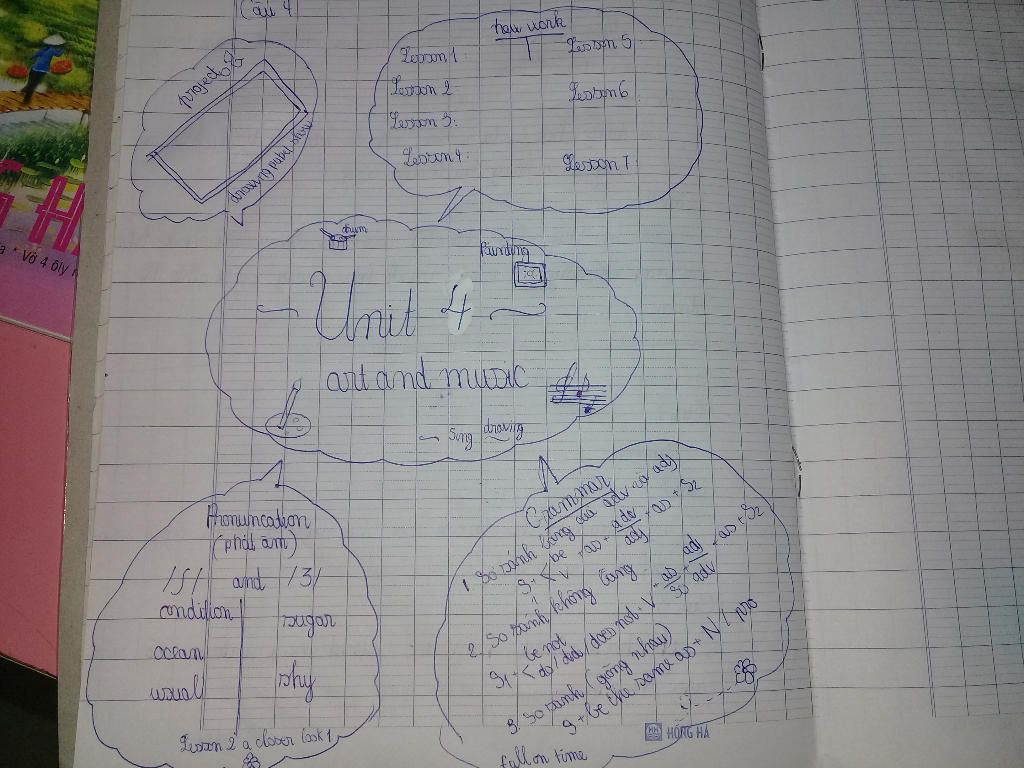 Câu 4
project of
drawing music show
Lesson 1
Lesson 2
Lesson 3:
Lesson 4:
Lesson 5
Lesson 6
Lesson 7
drum
Painting
Unit 4
art and music
Sing
drawing
Pronuncation
(phát âm)
/ʃ/ and /ʒ/
condition
sugar
ocean
shy
usual
Lesson 2 a closer look 1
Grammar
1. So sánh bằng của adv và adj
S1 + < be / V + as + adv / adj + as + S2
2. So sánh không bằng
be not
S1 + < do / did / does not + V + as / so + adj / adv + as + S2
3. So sánh (giống nhau)
S + be the same as + N / pro
full on time
HH HỒNG HÀ
Vở 4 ôly